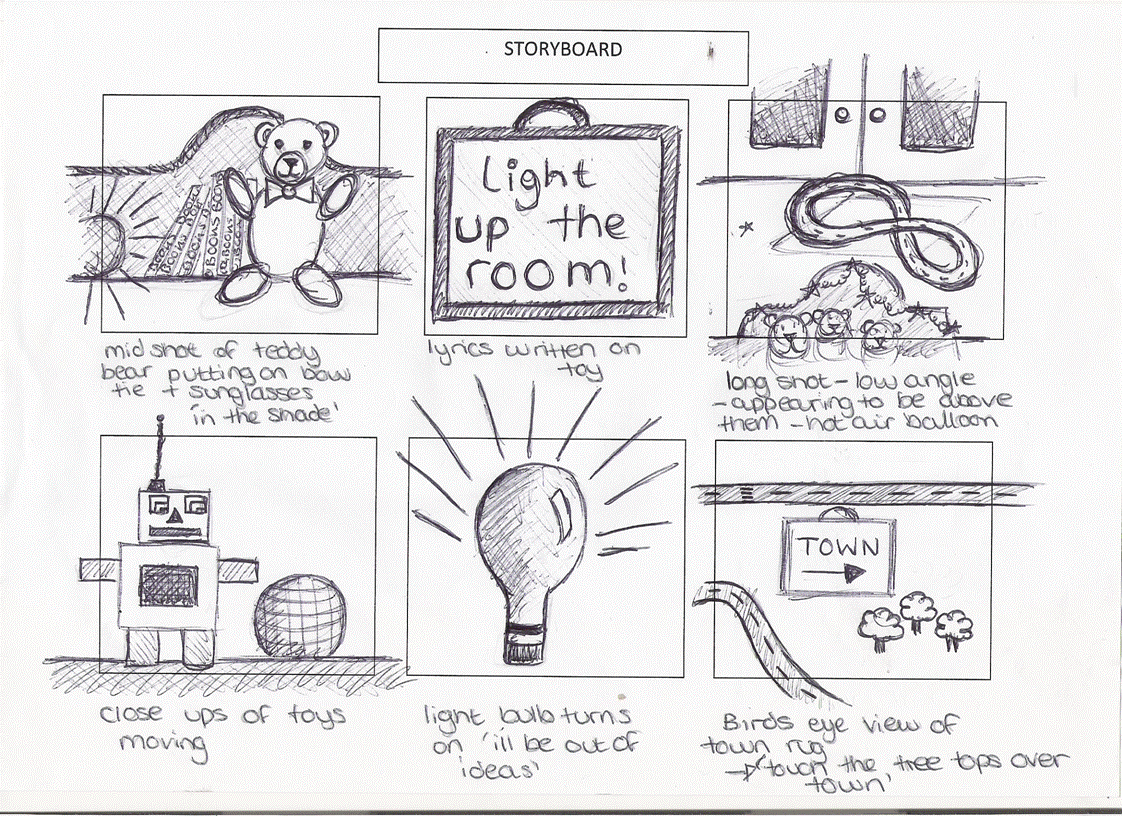 STORYBOARD
Light
up the
room!
mid shot of teddy
bear putting on bow
tie + sunglasses
'in the shade'
lyrics written on
toy
long shot - low angle
- appearing to be above
them - hot air balloon
TOWN
close ups of toys
moving
light bulb turns
on 'ill be out of
ideas'
Birds eye view of
town rug
→ 'touch the tree tops over
town'